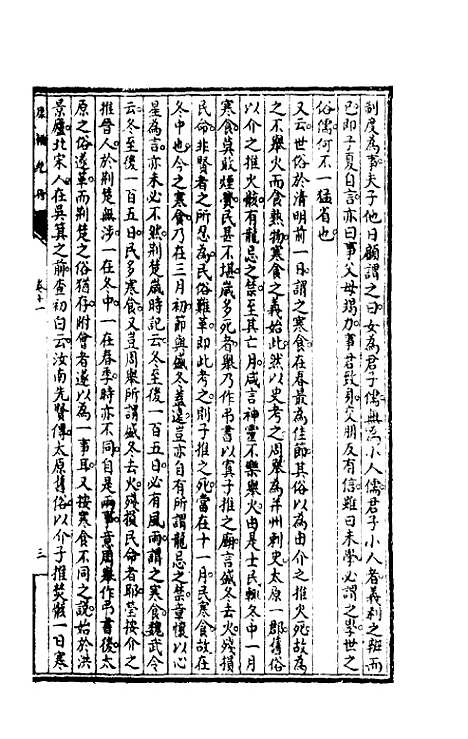 制度為事夫子他日顧謂之曰女為君子儒無為小人儒君子小人者義利之辨而
已即子夏自言亦曰事父母竭力事君致身交朋友有信雖曰未學必謂之學世之
俗儒何不一猛省也
又云世俗於清明前一日謂之寒食在春最為佳節其俗以為由介之推火死故為
之不舉火而食熟物寒食之義始此然以史考之周舉為并州刺史太原一郡舊俗
以介之推火骸有龍忌之禁至其亡月咸言神靈不樂舉火由是士民輒冬中一月
寒食莫敢煙爨民甚不堪歲多死者舉乃作弔書以寘子推之廟言盛冬去火殘損
民命非賢者之所忍為民俗難革即此考之則子推之死當在十一月民寒食故在
冬中也今之寒食乃在三月初節與盛冬盖遠豈亦自有所謂龍忌之禁章懷以心
星為言亦未必不然荆楚歲時記云冬至後一百五日必有風雨謂之寒食魏武令
云冬至後一百五日民多寒食又豈周舉所謂盛冬去火殘損民命者耶葢按介之
推晉人於荆楚無涉一在冬中一在春季時亦不同自是兩事意周舉作弔書後太
原之俗遂革而荆楚之俗猶存附會者遂以為一事耳又按寒食不同之說始於洪
景廬北宋人在吳箕之前查初白云汝南先賢傳太原舊俗以介子推焚骸一日寒
卷十一
三